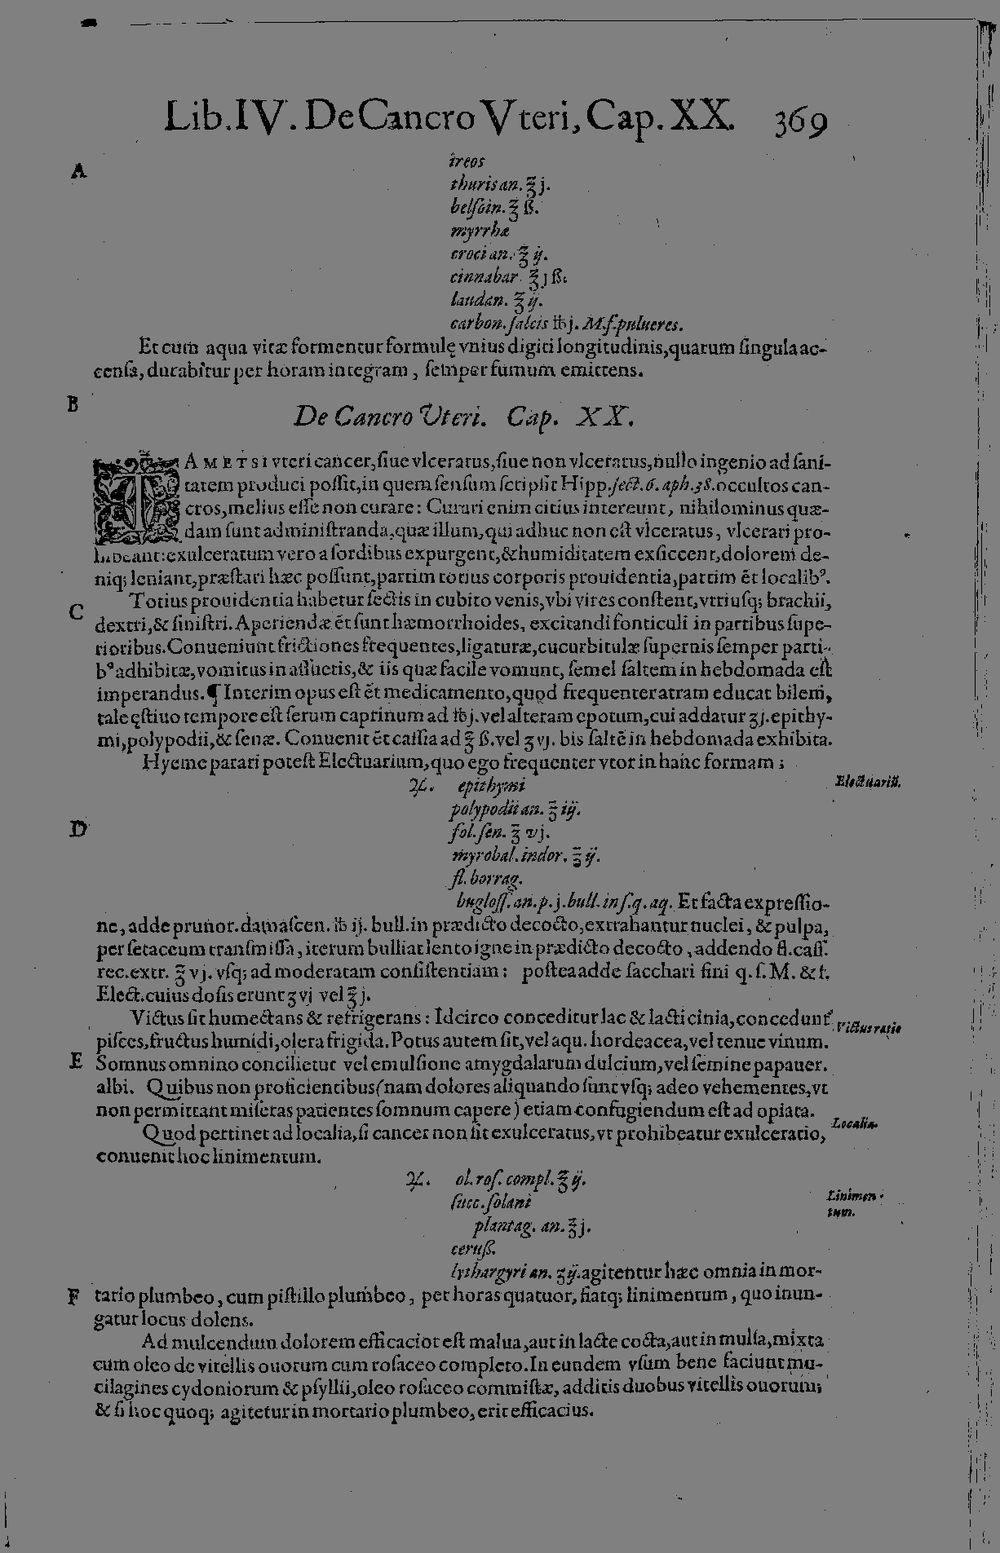 Lib.IV. De Cancro Vteri, Cap. XX. 369
A
ireos
thuris an. ℥ j.
belſoin. ℥ ß.
myrrhæ
croci an. ℥ ij.
cinnabar. ℥ j ß.
laudan. ℥ ij.
carbon. ſalcis ℔ j. M. f. pulueres.
Et cum aqua vitæ formentur formulę vnius digiti longitudinis, quarum ſingula ac-
cenſa, durabitur per horam integram, ſemper fumum emittens.
B
De Cancro Vteri. Cap. XX.
TAMETSI vteri cancer, ſiue vlceratus, ſiue non vlceratus, nullo ingenio ad ſani-
tatem produci poſſit, in quem ſenſum ſcripſit Hipp. ſect. 6. aph. 38. occultos can-
cros, melius eſſe non curare: Curari enim citius intereunt, nihilominus quæ-
dam ſunt adminiſtranda, quæ illum, qui adhuc non eſt vlceratus, vlcerari pro-
hibeant: exulceratum vero a ſordibus expurgent, & humiditatem exſiccent, dolorem de-
niq; leniant, præſtari hæc poſſunt, partim totius corporis prouidentia, partim ēt localibꝰ.
C
Totius prouidentia habetur ſectis in cubito venis, vbi vires conſtent, vtriuſq; brachii,
dextri, & ſiniſtri. Aperiendæ ēt ſunt hæmorrhoides, excitandi fonticuli in partibus ſupe-
rioribus. Conueniunt frictiones frequentes, ligaturæ, cucurbitulæ ſupernis ſemper parti-
bꝰ adhibitæ, vomitus in aſſuetis, & iis quæ facile vomunt, ſemel ſaltem in hebdomada eſt
imperandus. ¶ Interim opus eſt ēt medicamento, quod frequenter atram educat bilem,
tale ęſtiuo tempore eſt ſerum caprinum ad ℔ j. vel alteram epotum, cui addatur ʒ j. epithy-
mi, polypodii, & ſenæ. Conuenit ēt caſſia ad ℥ ß. vel ʒ vj. bis ſaltē in hebdomada exhibita.
Hyeme parari poteſt Electuarium, quo ego frequenter vtor in hanc formam;
Electuariū.
♃. epithymi
polypodii an. ℥ iij.
D
fol. ſen. ℥ vj.
myrobal. indor. ℥ ij.
fl. borrag.
bugloſſ. an. p. j. bull. in ſ. q. aq. Et facta expreſſio-
ne, adde prunor. damaſcen. ℔ ij. bull. in prædicto decocto, extrahantur nuclei, & pulpa,
per ſetaceum tranſmiſſa, iterum bulliat lento igne in prædicto decocto, addendo fl. caſſ.
rec. extr. ℥ vj. vſq; ad moderatam conſiſtentiam: poſtea adde ſacchari fini q. ſ. M. & f.
Elect. cuius doſis erunt ʒ vj vel ℥ j.
Victus ſit humectans & refrigerans: Idcirco conceditur lac & lacticinia, concedunt͛
Victus ratio
piſces, fructus humidi, olera frigida. Potus autem ſit, vel aqu. hordeacea, vel tenue vinum.
E
Somnus omnino concilietur vel emulſione amygdalarum dulcium, vel ſemine papauer.
albi. Quibus non proficientibus (nam dolores aliquando ſunt vſq; adeo vehementes, vt
non permittant miſeras patientes ſomnum capere) etiam confugiendum eſt ad opiata.
Quod pertinet ad localia, ſi cancer non ſit exulceratus, vt prohibeatur exulceratio,
Localia.
conuenit hoc linimentum.
♃. ol. roſ. compl. ℥ ij.
Linimen-
tum.
ſucc. ſolani
plantag. an. ℥ j.
ceruß.
lythargyri an. ʒ ij. agitentur hæc omnia in mor-
F
tario plumbeo, cum piſtillo plumbeo, per horas quatuor, fiatq; linimentum, quo inun-
gatur locus dolens.
Ad mulcendum dolorem efficacior eſt malua, aut in lacte cocta, aut in mulſa, mixta
cum oleo de vitellis ouorum cum roſaceo completo. In eundem vſum bene faciunt mu-
cilagines cydoniorum & pſyllii, oleo roſaceo commiſtæ, additis duobus vitellis ouorum;
& ſi hoc quoq; agitetur in mortario plumbeo, erit efficacius.